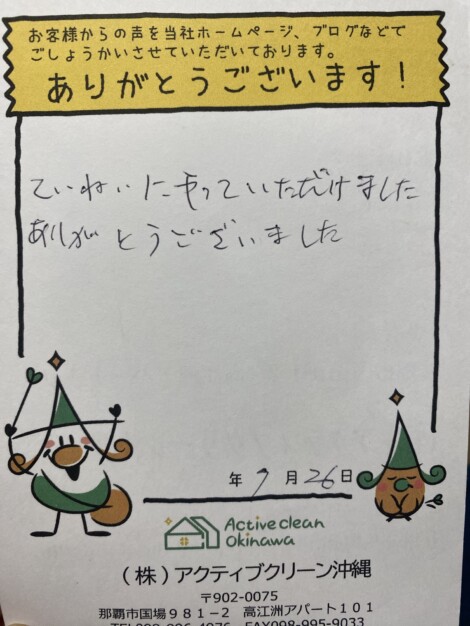 お客様からの声を当社ホームページ、ブログなどで
ごしょうかいさせていただいております。
ありがとうございます！
ていねいにやっていただけました
ありがとうございました
年 9 月 26 日
Active clean
Okinawa
（株）アクティブクリーン沖縄
〒902-0075
那覇市国場９８１−２ 高江洲アパート１０１